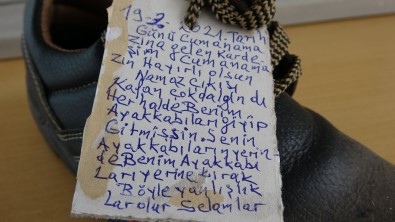 19-2-2021 Tarih
Günü Cumanama
Zina gelen Karde
şim Cumanama
Zin Hayırlı olsun
Namaz Çıkışı
Kafan çokdalgındı
Herhalde Benim
Ayakkabılarıgiyip
Gitmişsin Senin
Ayakkabılarıyerin
de Benim Ayakkabı
Ları yerine bırak
Böyle yanlışlık
Lar olur Selamlar